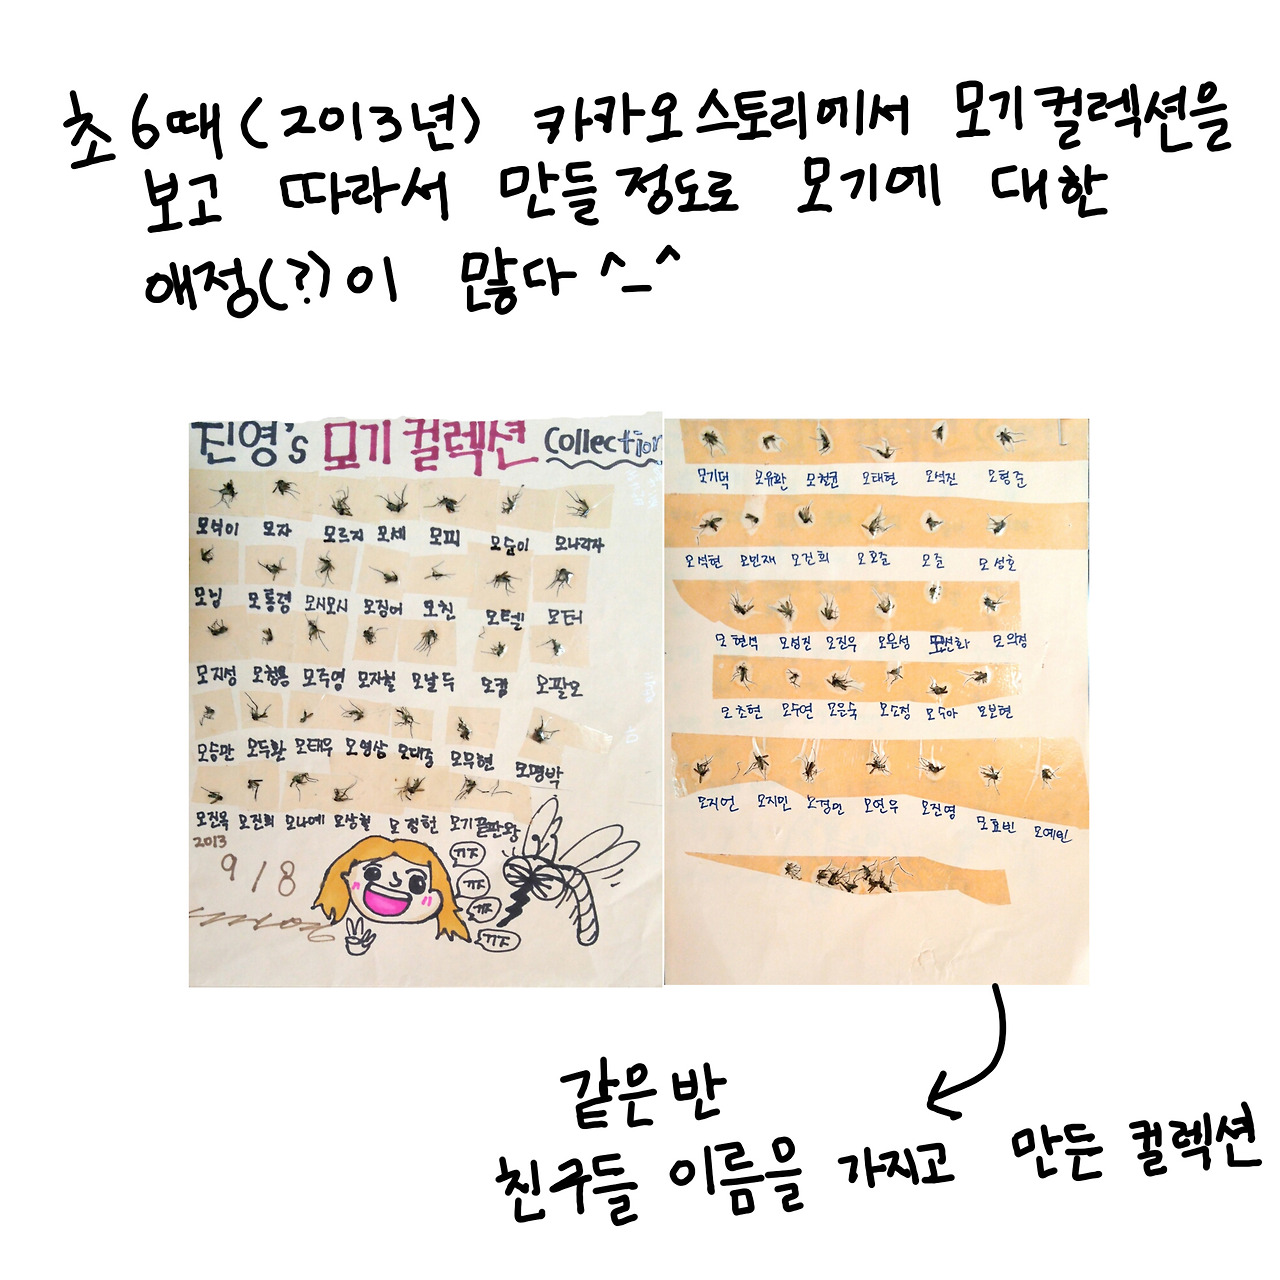 초6때(2013년) 카카오스토리에서 모기컬렉션을
보고 따라서 만들 정도로 모기에 대한
애정(?)이 많다 ^_^
진영's 모기 컬렉션 collection
모석이 모자 모르지 모세 모찌 모숨이 모나리자
모닝 모통령 모시모시 모징어 모친 모텔 모터
모지성 모청룡 모주영 모자칠 모날두 모캉 모팔모
모승만 모두환 모태우 모영삼 모대중 모무현 모명박
모진욱 모진희 모나예 모상철 모정헌 모기끝판왕
2013
9/8
ㄲㅈ
ㄲㅈ
ㄲㅈ
ㄲㅈ
모기덕 모유환 모찬균 모태현 모석진 모형준
모석현 모민재 모건희 모호준 모준 모성호
모현석 모성진 모진우 모윤성 모의정
모초현 모수연 모은숙 모소정 모수아 모보현
모지언 모지민 모경민 모연우 모진영 모효빈 모예린
같은 반
친구들 이름을 가지고 만든 컬렉션